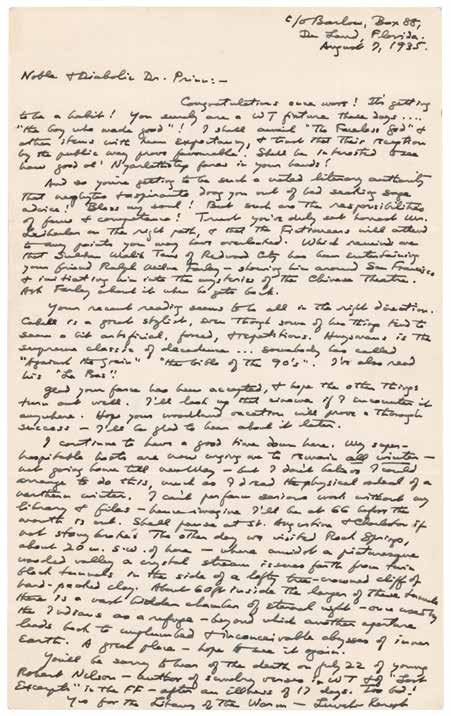 c/o Barlow, Box 88,
De Land, Florida.
August 7, 1935.
Noble & Diabolic Dr. Prinn:—
Congratulations once more! It's getting
to be a habit! You surely are a WT fixture these days....
"the boy who made good"! I shall await "The Faceless God" &
other items with keen expectancy, & trust that their reception
by the public may prove favourable. Shall be interested to see
how good ol' Nyarlathotep fares in your hands!
And so you're getting to be such a noted literary authority
that neophytes & aspirants drag you out of bed seeking sage
advice! Bless my soul! But such are the responsibilities
of fame & competence! Trust you've duly set honest Mr.
on the right path, & that the Fictioneers will attend
to any points you may have overlooked. Which reminds me
that Sultan Malik Taus of Redwood City has been entertaining
your friend Ralph Milne Farley — showing him around San Francisco
& initiating him into the mysteries of the Chinese Theatre.
Ask Farley about it when he gets back.
Your recent reading seems to be all in the right direction.
Cabell is a great stylist, even though some of his things tend to
seem a bit artificial, forced, & repetitious. Huysmans is the
supreme classic of decadence... somebody has called
"Against the Grain" "the bible of the 90's". I've also read
his "Là Bas".
Glad your farce has been accepted, & hope the other things
turn out well. I'll look up that cinema if I encounter it
anywhere. Hope your woodland vacation will prove a thorough
success — I'll be glad to hear about it later.
I continue to have a good time down here. My super-
hospitable hosts are now urging me to remain all winter —
not going home till new — but I don't believe I could
arrange to do this, much as I dread the physical ordeal of a
northern winter. I can't perform serious work without my
library & files — hence imagine I'll be at 66 before the
month is out. Shall pause at St. Augustine & Charleston if
not stony broke. The other day we visited Rock Springs,
about 20 m. s.w. of here — where amidst a picturesque
wooded valley a crystal stream issues forth from twin
black tunnels in the side of a lofty tree-crowned cliff of
hard-packed clay. About 60 ft inside the larger of these tunnels
there is a vast hidden chamber of eternal night — once used by
the Indians as a refuge — beyond which another aperture
leads back to unplumbed & inconceivable abysses of inner
Earth. A great place — hope to see it again.
You'll be sorry to hear of the death on July 22 of young
Robert Nelson — author of sundry verses in WT & of "Lost
Excerpts" in the FF — after an illness of 17 days. Too bad!
Yrs for the Litany of the Worm —